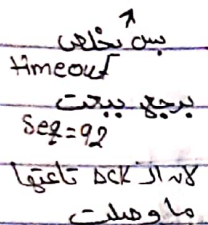 بس يخلص
timeout
برجع ببعت
Seq=92
لانه الـ ACK تاعتها
ما وصلت